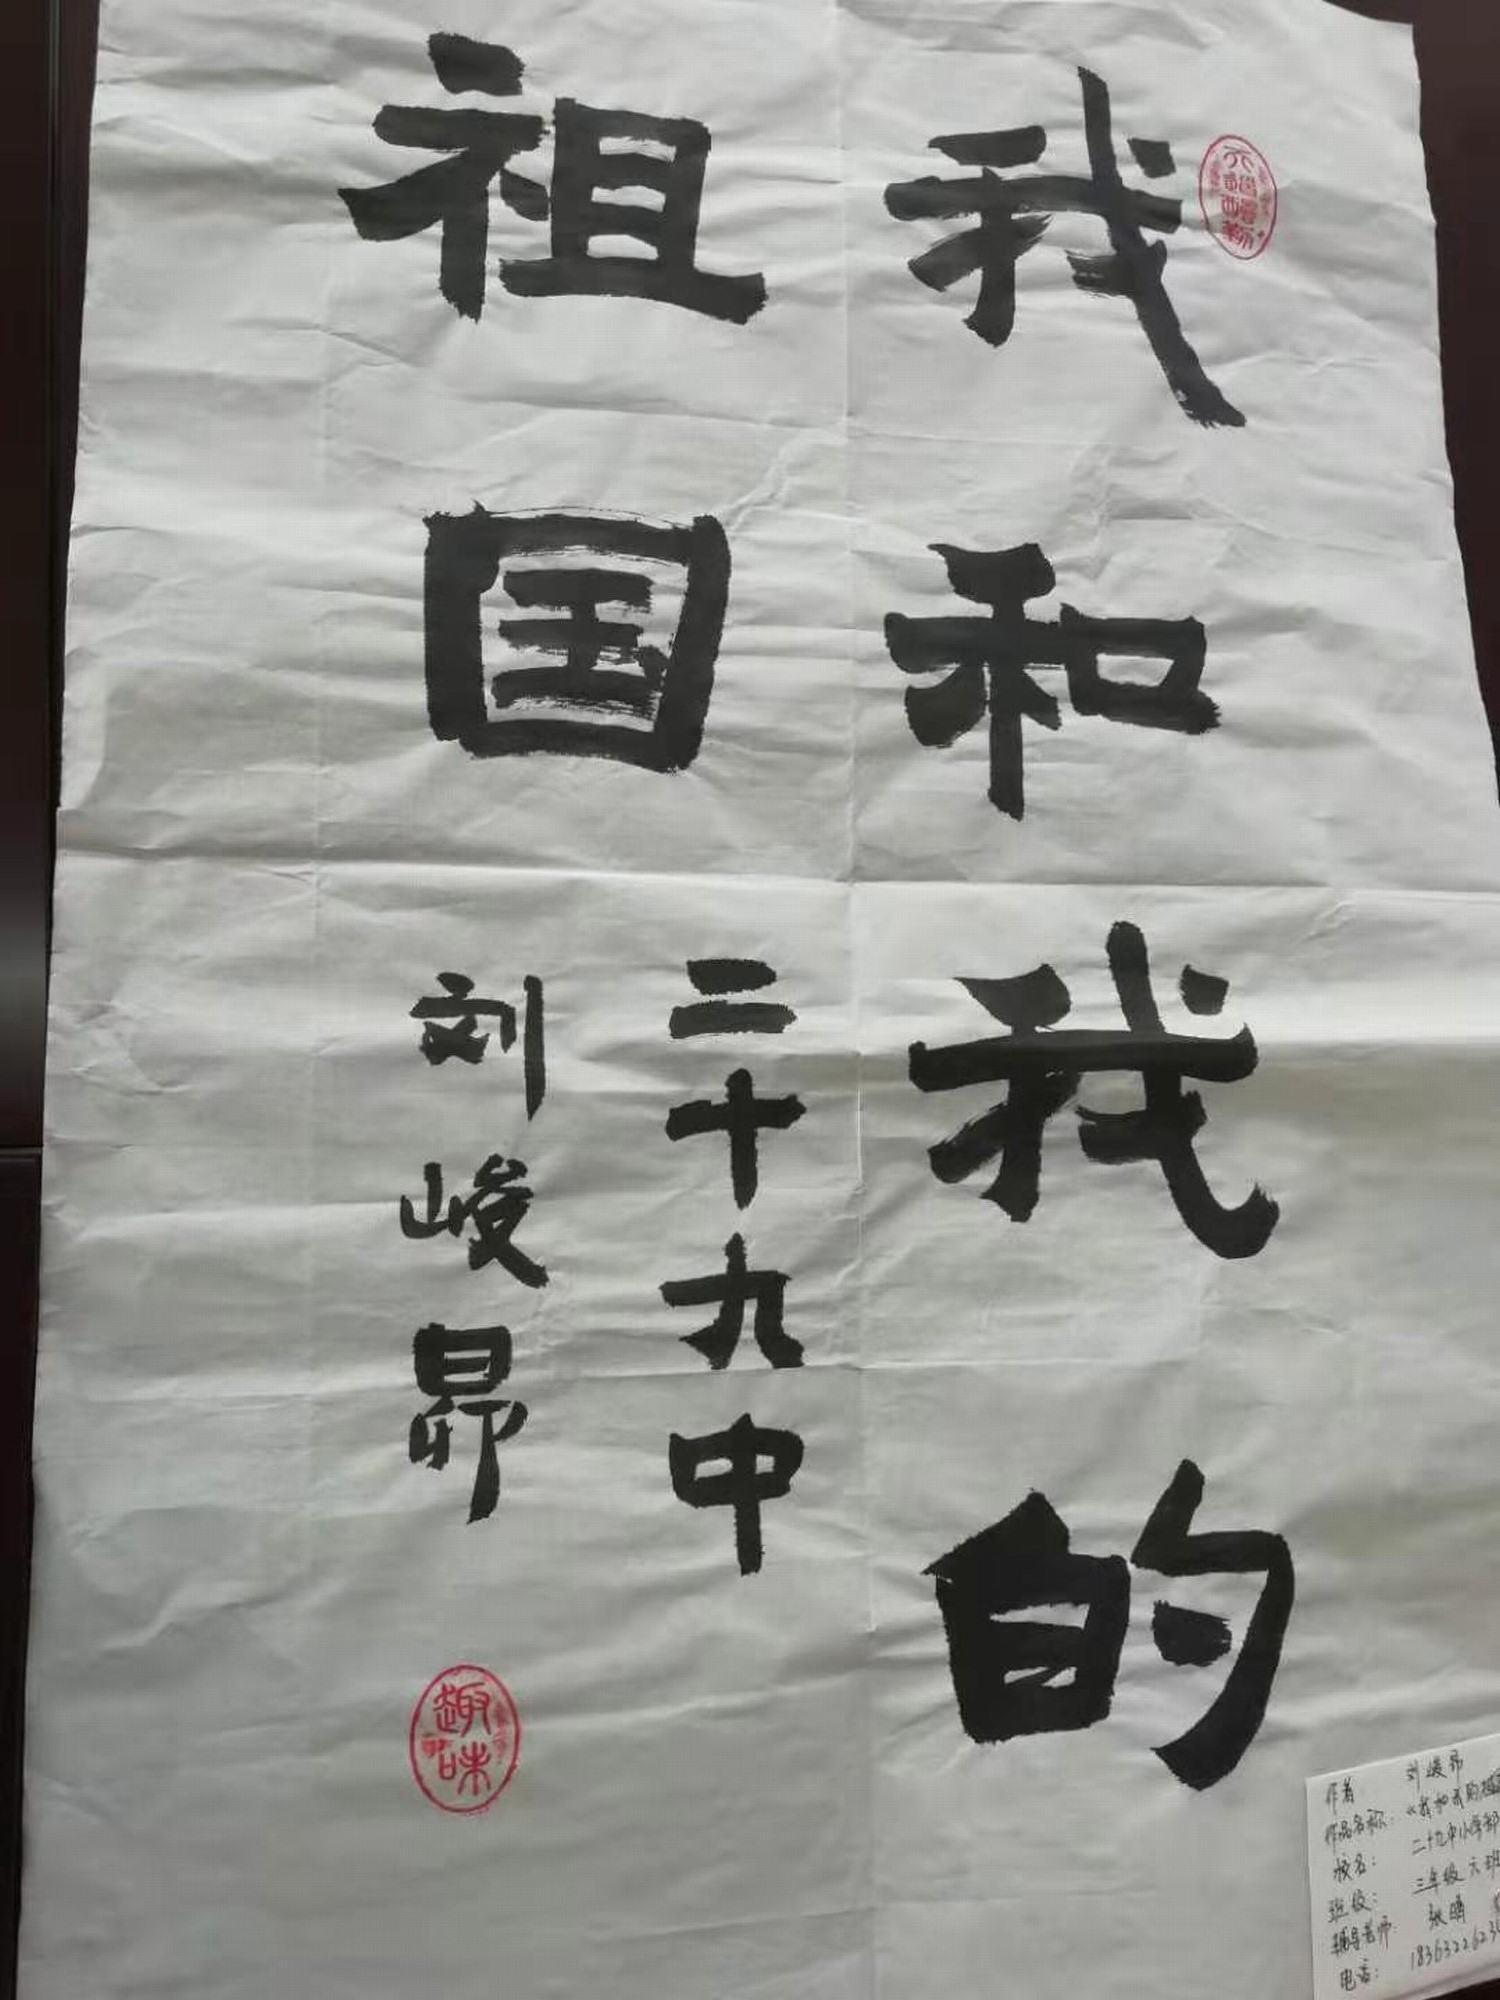 我和我的
祖国
二十九中
刘峻昴
趣味
作者 刘峻昴
作品名称:《我和我的祖
校名: 二十九中小学部
班级: 三年级六班
辅导老师: 张晴
电话: